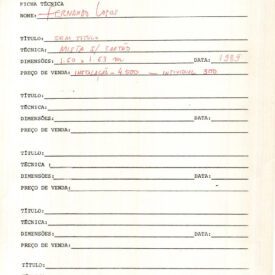 FICHA TÉCNICA
NOME: FERNANDO LOPES
TÍTULO: SEM TITULO
TÉCNICA: MISTA S/ CARTÃO
DIMENSÕES: 1.60 x 1.63 m DATA: 1989
PREÇO DE VENDA: INSTALAÇÃO - 4.000 — INDIVIDUAL 300
TÍTULO:
TÉCNICA:
DIMENSÕES: DATA:
PREÇO DE VENDA:
TÍTULO:
TÉCNICA:
DIMENSÕES: DATA:
PREÇO DE VENDA:
TÍTULO:
TÉCNICA:
DIMENSÕES: DATA:
PREÇO DE VENDA:
TÍTULO: